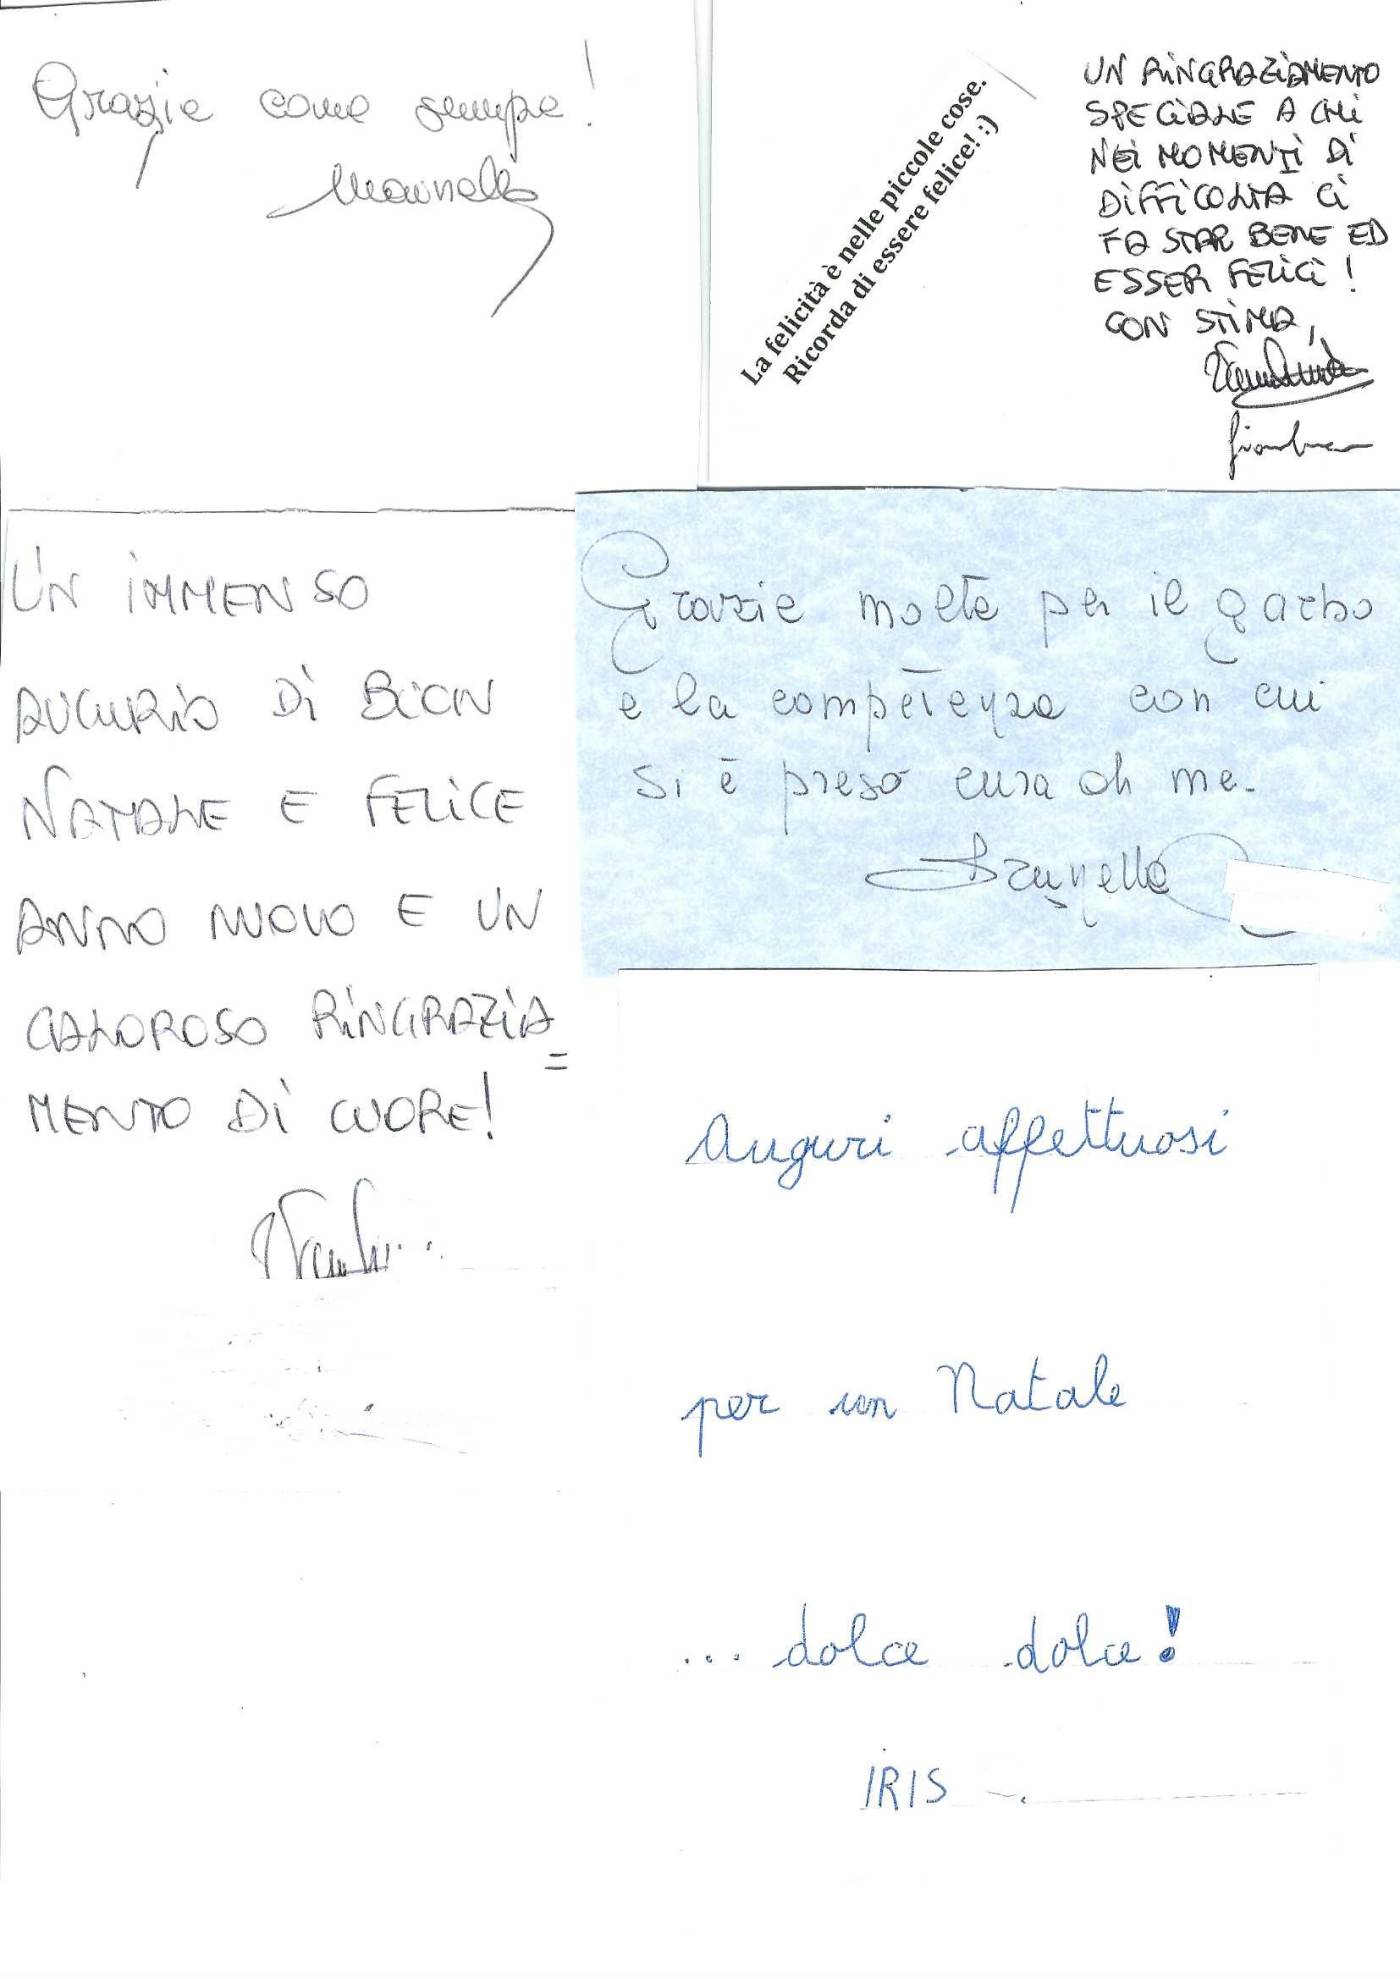 Grazie come sempre!
La felicità è nelle piccole cose.
Ricorda di essere felice! :)
UN RINGRAZIAMENTO
SPECIALE A CHI
NEI MOMENTI DI
DIFFICOLTA CI
FA STAR BENE ED
ESSER FELICI!
CON STIMA,
UN IMMENSO
AUGURIO DI BUON
NATALE E FELICE
ANNO NUOVO E UN
CALOROSO RINGRAZIA=
MENTO DI CUORE!
Grazie molte per il garbo
e la competenza con cui
si è preso cura di me.
Brunella
Auguri affettuosi
per un Natale
... dolce dolce!
IRIS